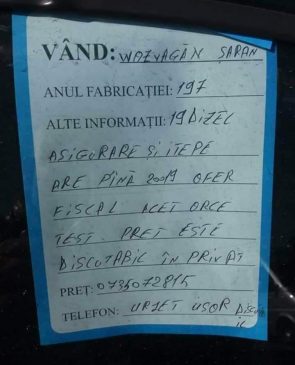 VÂND: WOZVAGĂN SARAN
ANUL FABRICAȚIEI: 197
ALTE INFORMAȚII: 19 DIZEL
ASIGURARE ȘI ITEPE
ARE PÎNĂ 20019 OFER
FISCAL ACET ORCE
TEST PREȚ ESTE
DISCOTABIC ÎN PRIVAT
PREȚ: 0734072815
TELEFON: URJET USOR